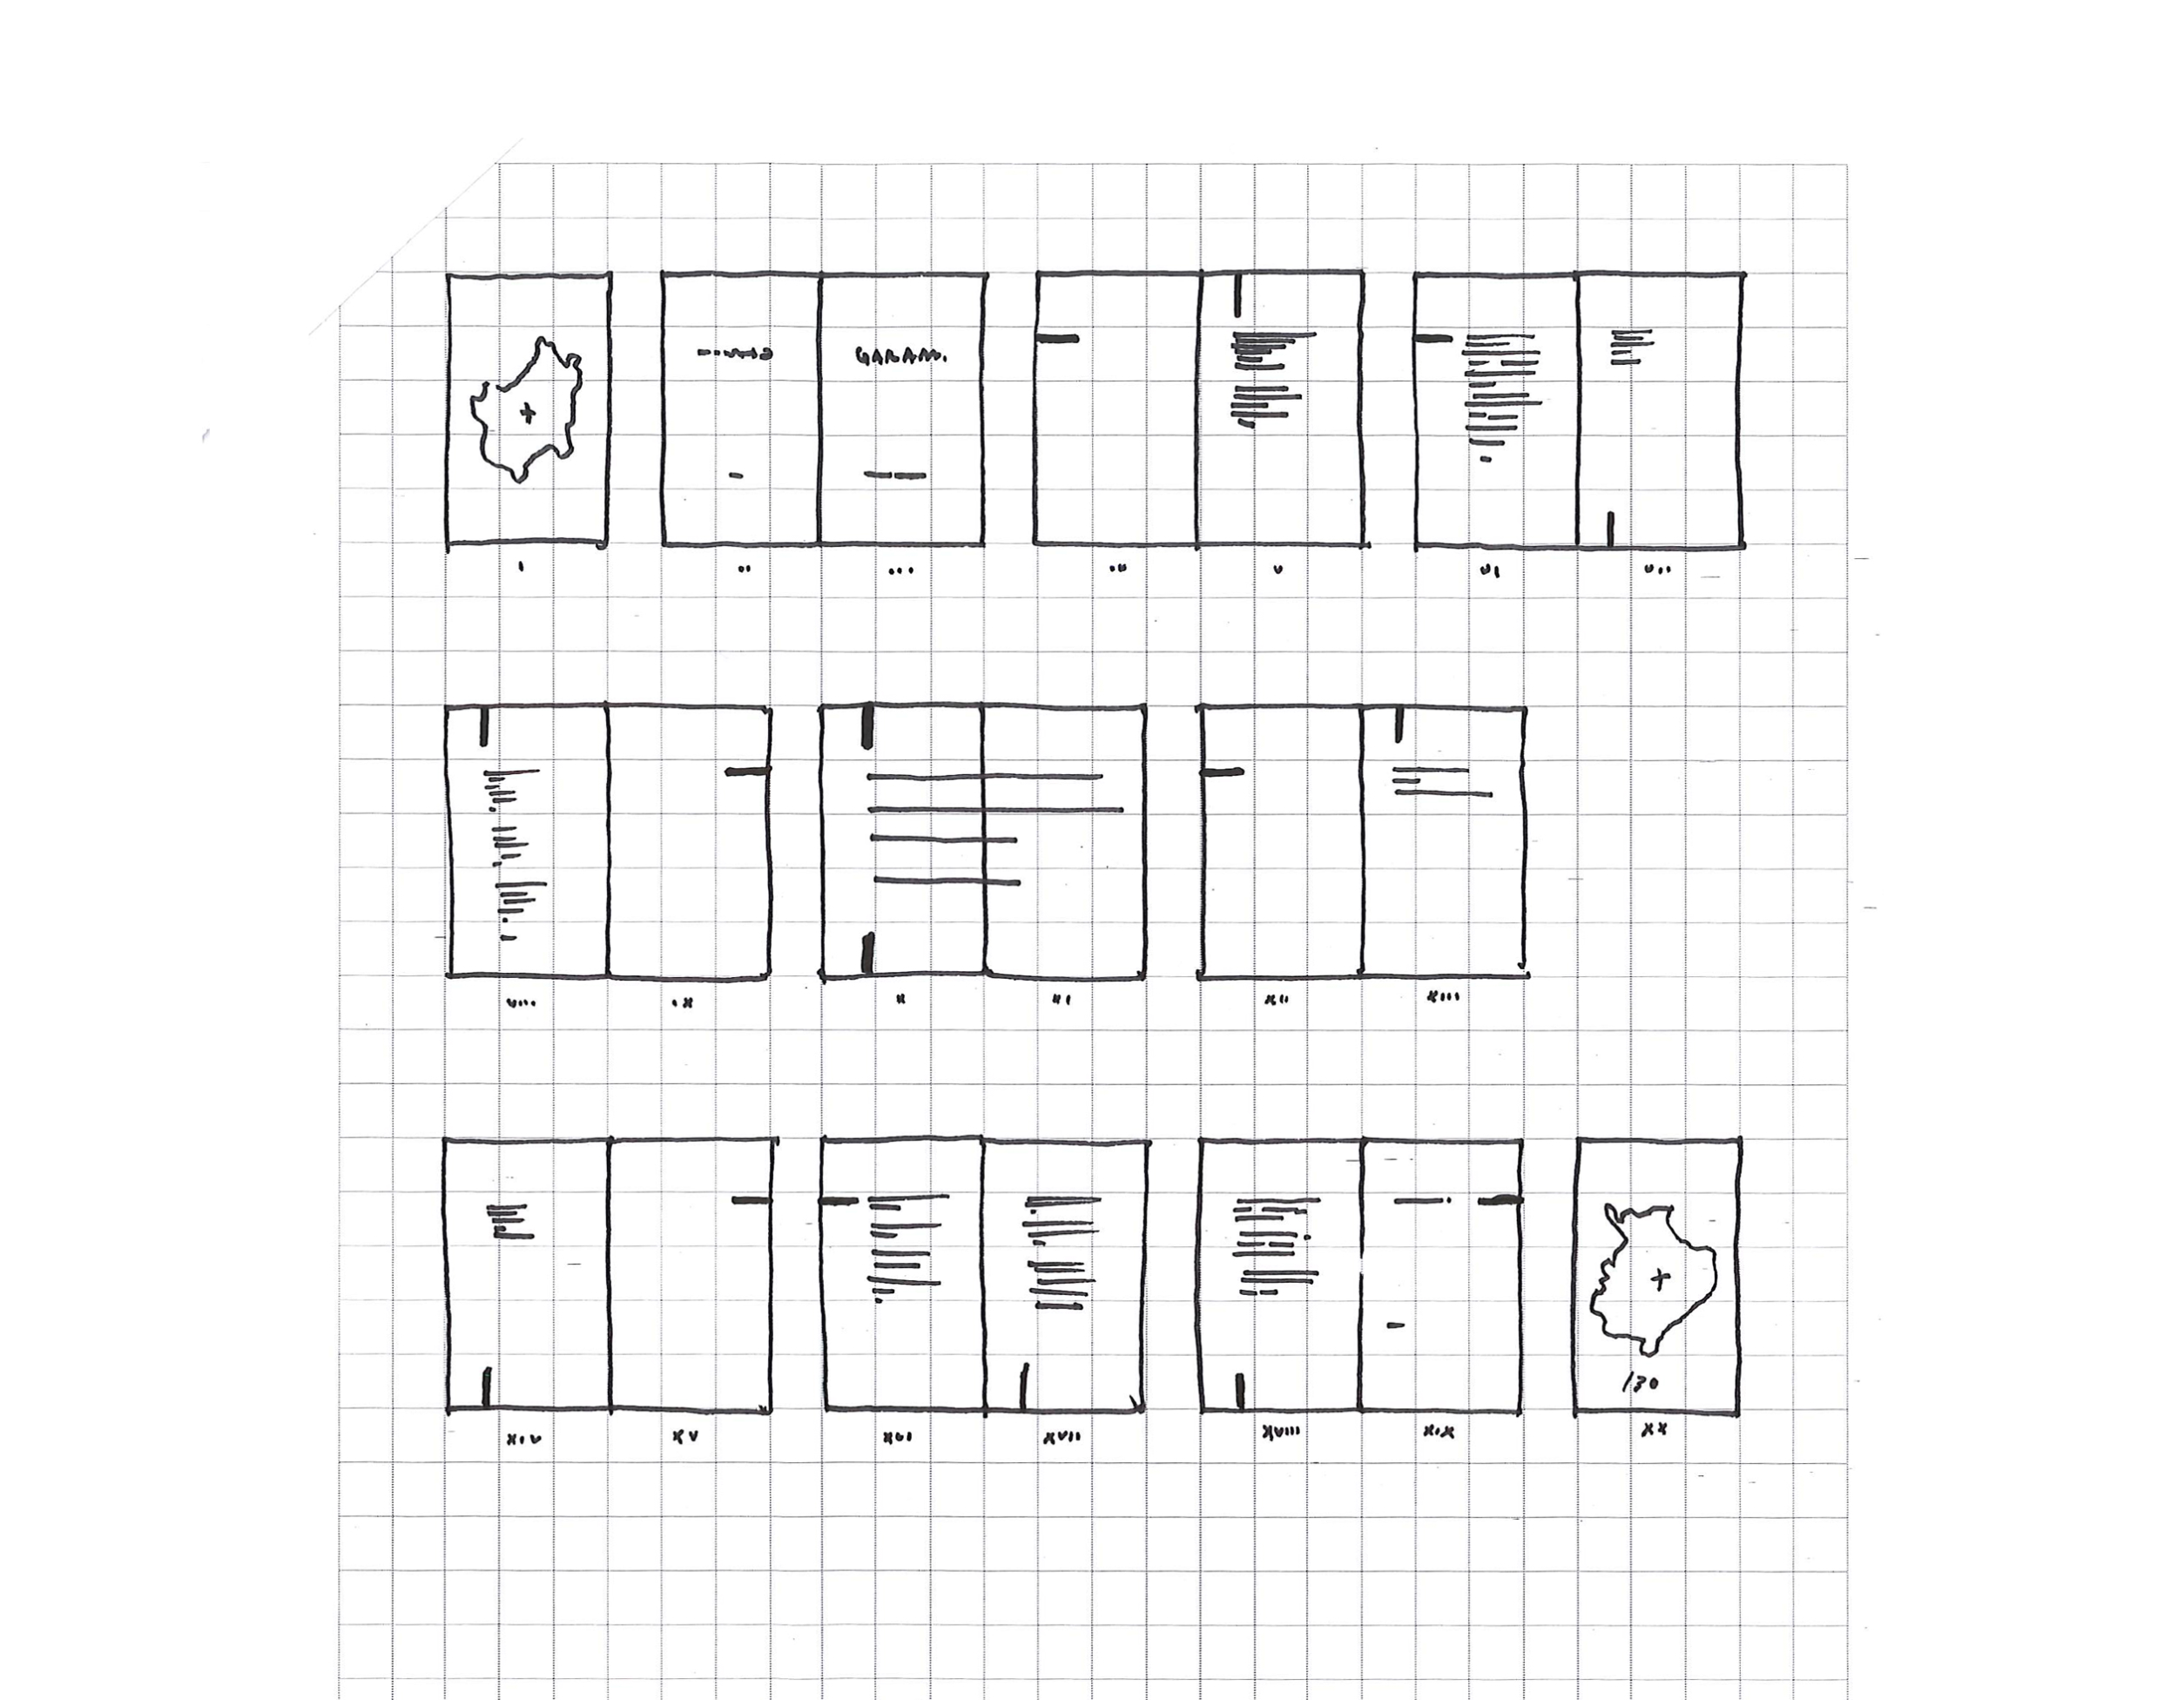 I
II
III
IV
V
VI
VII
VIII
IX
X
XI
XII
XIII
XIV
XV
XVI
XVII
130
XVIII
XIX
XX